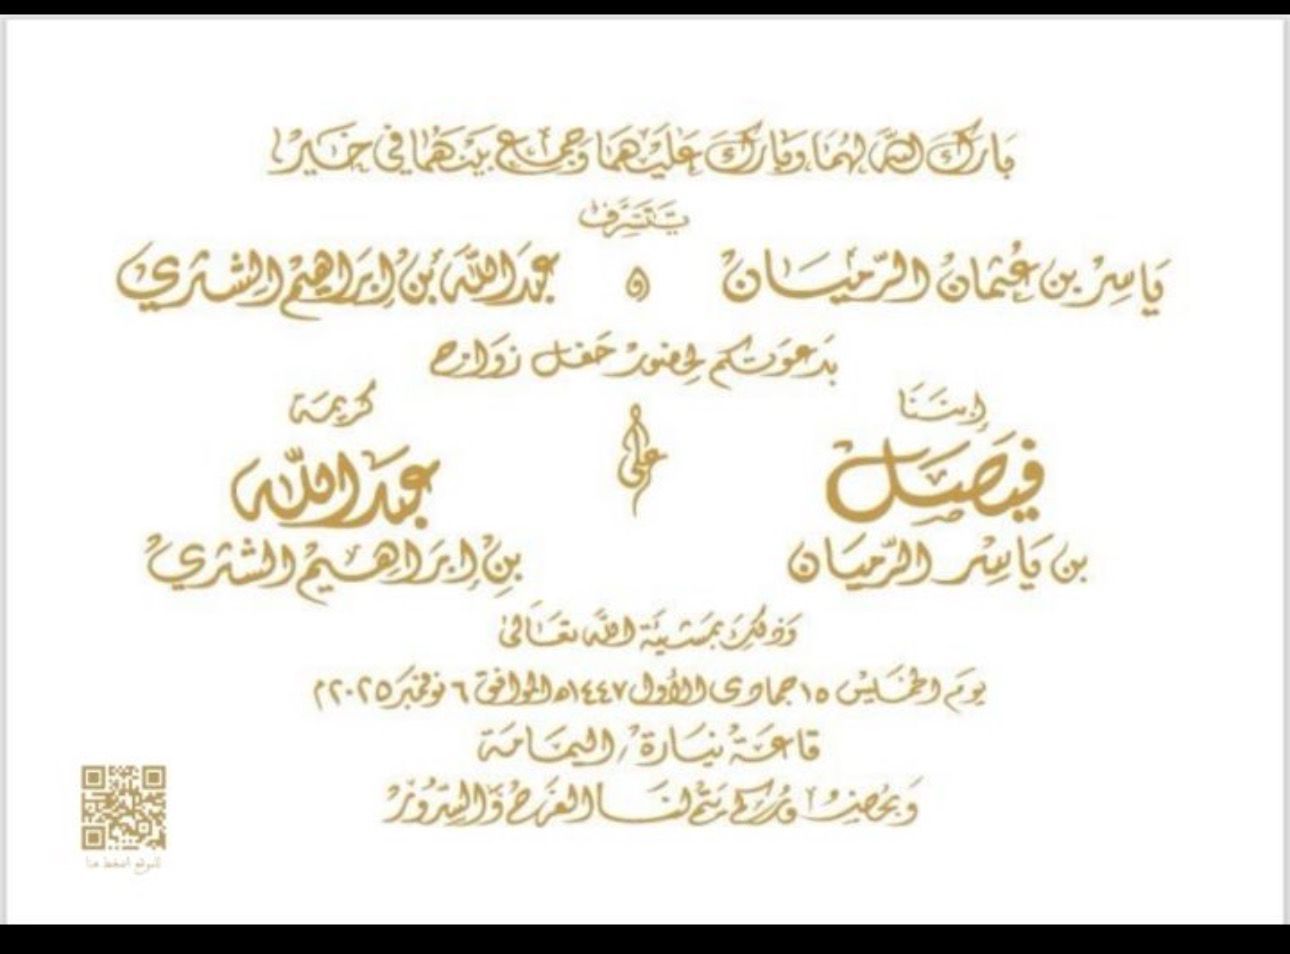 بارك الله لهما وبارك عليهما وجمع بينهما في خير
يتشرف
ياسر بن عثمان الرميان و عبدالله بن إبراهيم الشثري
بدعوتكم لحضور حفل زواج
إبننا
فيصل
بن ياسر الرميان
على
كريمة
عبدالله
بن إبراهيم الشثري
وذلك بمشيئة الله تعالى
يوم الخميس ١٥ جمادى الأول ١٤٤٧هـ الموافق ٦ نوفمبر ٢٠٢٥م
قاعة نيارة / اليمامة
وبحضوركم يتم لنا الفرح والسرور
للموقع اضغط هنا